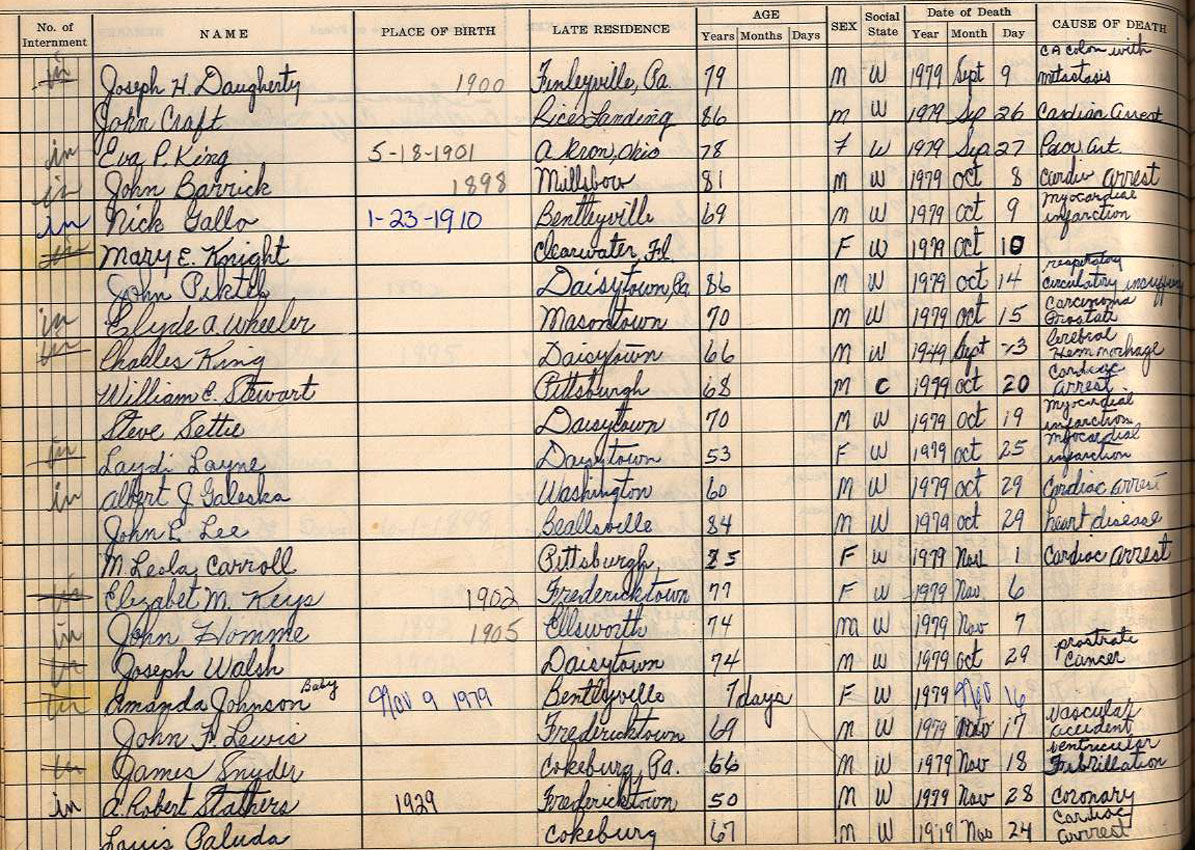 No. of Internment NAME PLACE OF BIRTH LATE RESIDENCE AGE Years Months Days SEX Social State Date of Death Year Month Day CAUSE OF DEATH
in Joseph H. Daugherty 1900 Finleyville, Pa. 79 M W 1979 Sept 9 CA colon with metastasis
John Craft Rices Landing 86 M W 1979 Sep 26 Cardiac Arrest
in Eva P. King 5-18-1901 Akron, Ohio 78 F W 1979 Sep 27
in John Barrick 1898 Millsboro 81 M W 1979 Oct 8 Cardiv arrest
in Nick Gallo 1-23-1910 Bentleyville 69 M W 1979 Oct 9 myocardial infarction
in Mary E. Knight Clearwater, Fl. F W 1979 Oct 10
John Daisytown, Pa. 86 M W 1979 Oct 14 respiratory circulatory
in Clyde A. Wheeler Masontown 70 M W 1979 Oct 15 Carcinoma Prostate
in Charles King Daisytown 66 M W Sept Cerebral Hemmorhage
William C. Stewart Pittsburgh 68 M C 1979 Oct 20 Cardiac arrest
Steve Settie Daisytown 70 M W 1979 Oct 19 myocardial infarction
in Layne Daisytown 53 F W 1979 Oct 25 myocardial infarction
in Albert J Galeska Washington 60 M W 1979 Oct 29 Cardiac arrest
John L. Lee Beallsville 84 M W 1979 Oct 29 heart disease
M. Leola Carroll Pittsburgh, F W 1979 Nov 1 Cardiac Arrest
in Elizabet M. Keys 1902 Fredericktown 77 F W 1979 Nov 6
in John Homme 1905 Ellsworth 74 M W 1979 Nov 7
in Joseph Walsh Daisytown 74 M W 1979 Oct 29 prostrate Cancer
in Amanda Johnson Baby Nov 9 1979 Bentleyville 7 days F W 1979 Nov 16
John F. Lewis Fredericktown 69 M W 1979 Nov 17 Vascular accident
in James Snyder Cokeburg, Pa. 66 M W 1979 Nov 18 Ventricular Fibrillation
in A. Robert Stathers 1929 Fredericktown 50 M W 1979 Nov 28 Coronary
Louis Paluda Cokeburg 67 M W 1979 Nov 24 Cardiac Arrrest